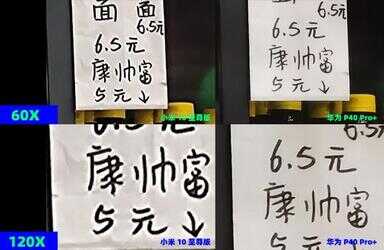 面 面
6.5元
6.5元
康帅富
5元↓
60X
小米 10 至尊版
面
6.5元
6.5元
康帅富
5元↓
华为 P40 Pro+
6.5元
康帅富
5元↓
120X
小米 10 至尊版
6.5
6.5元
康帅富
5元
华为 P40 Pro+